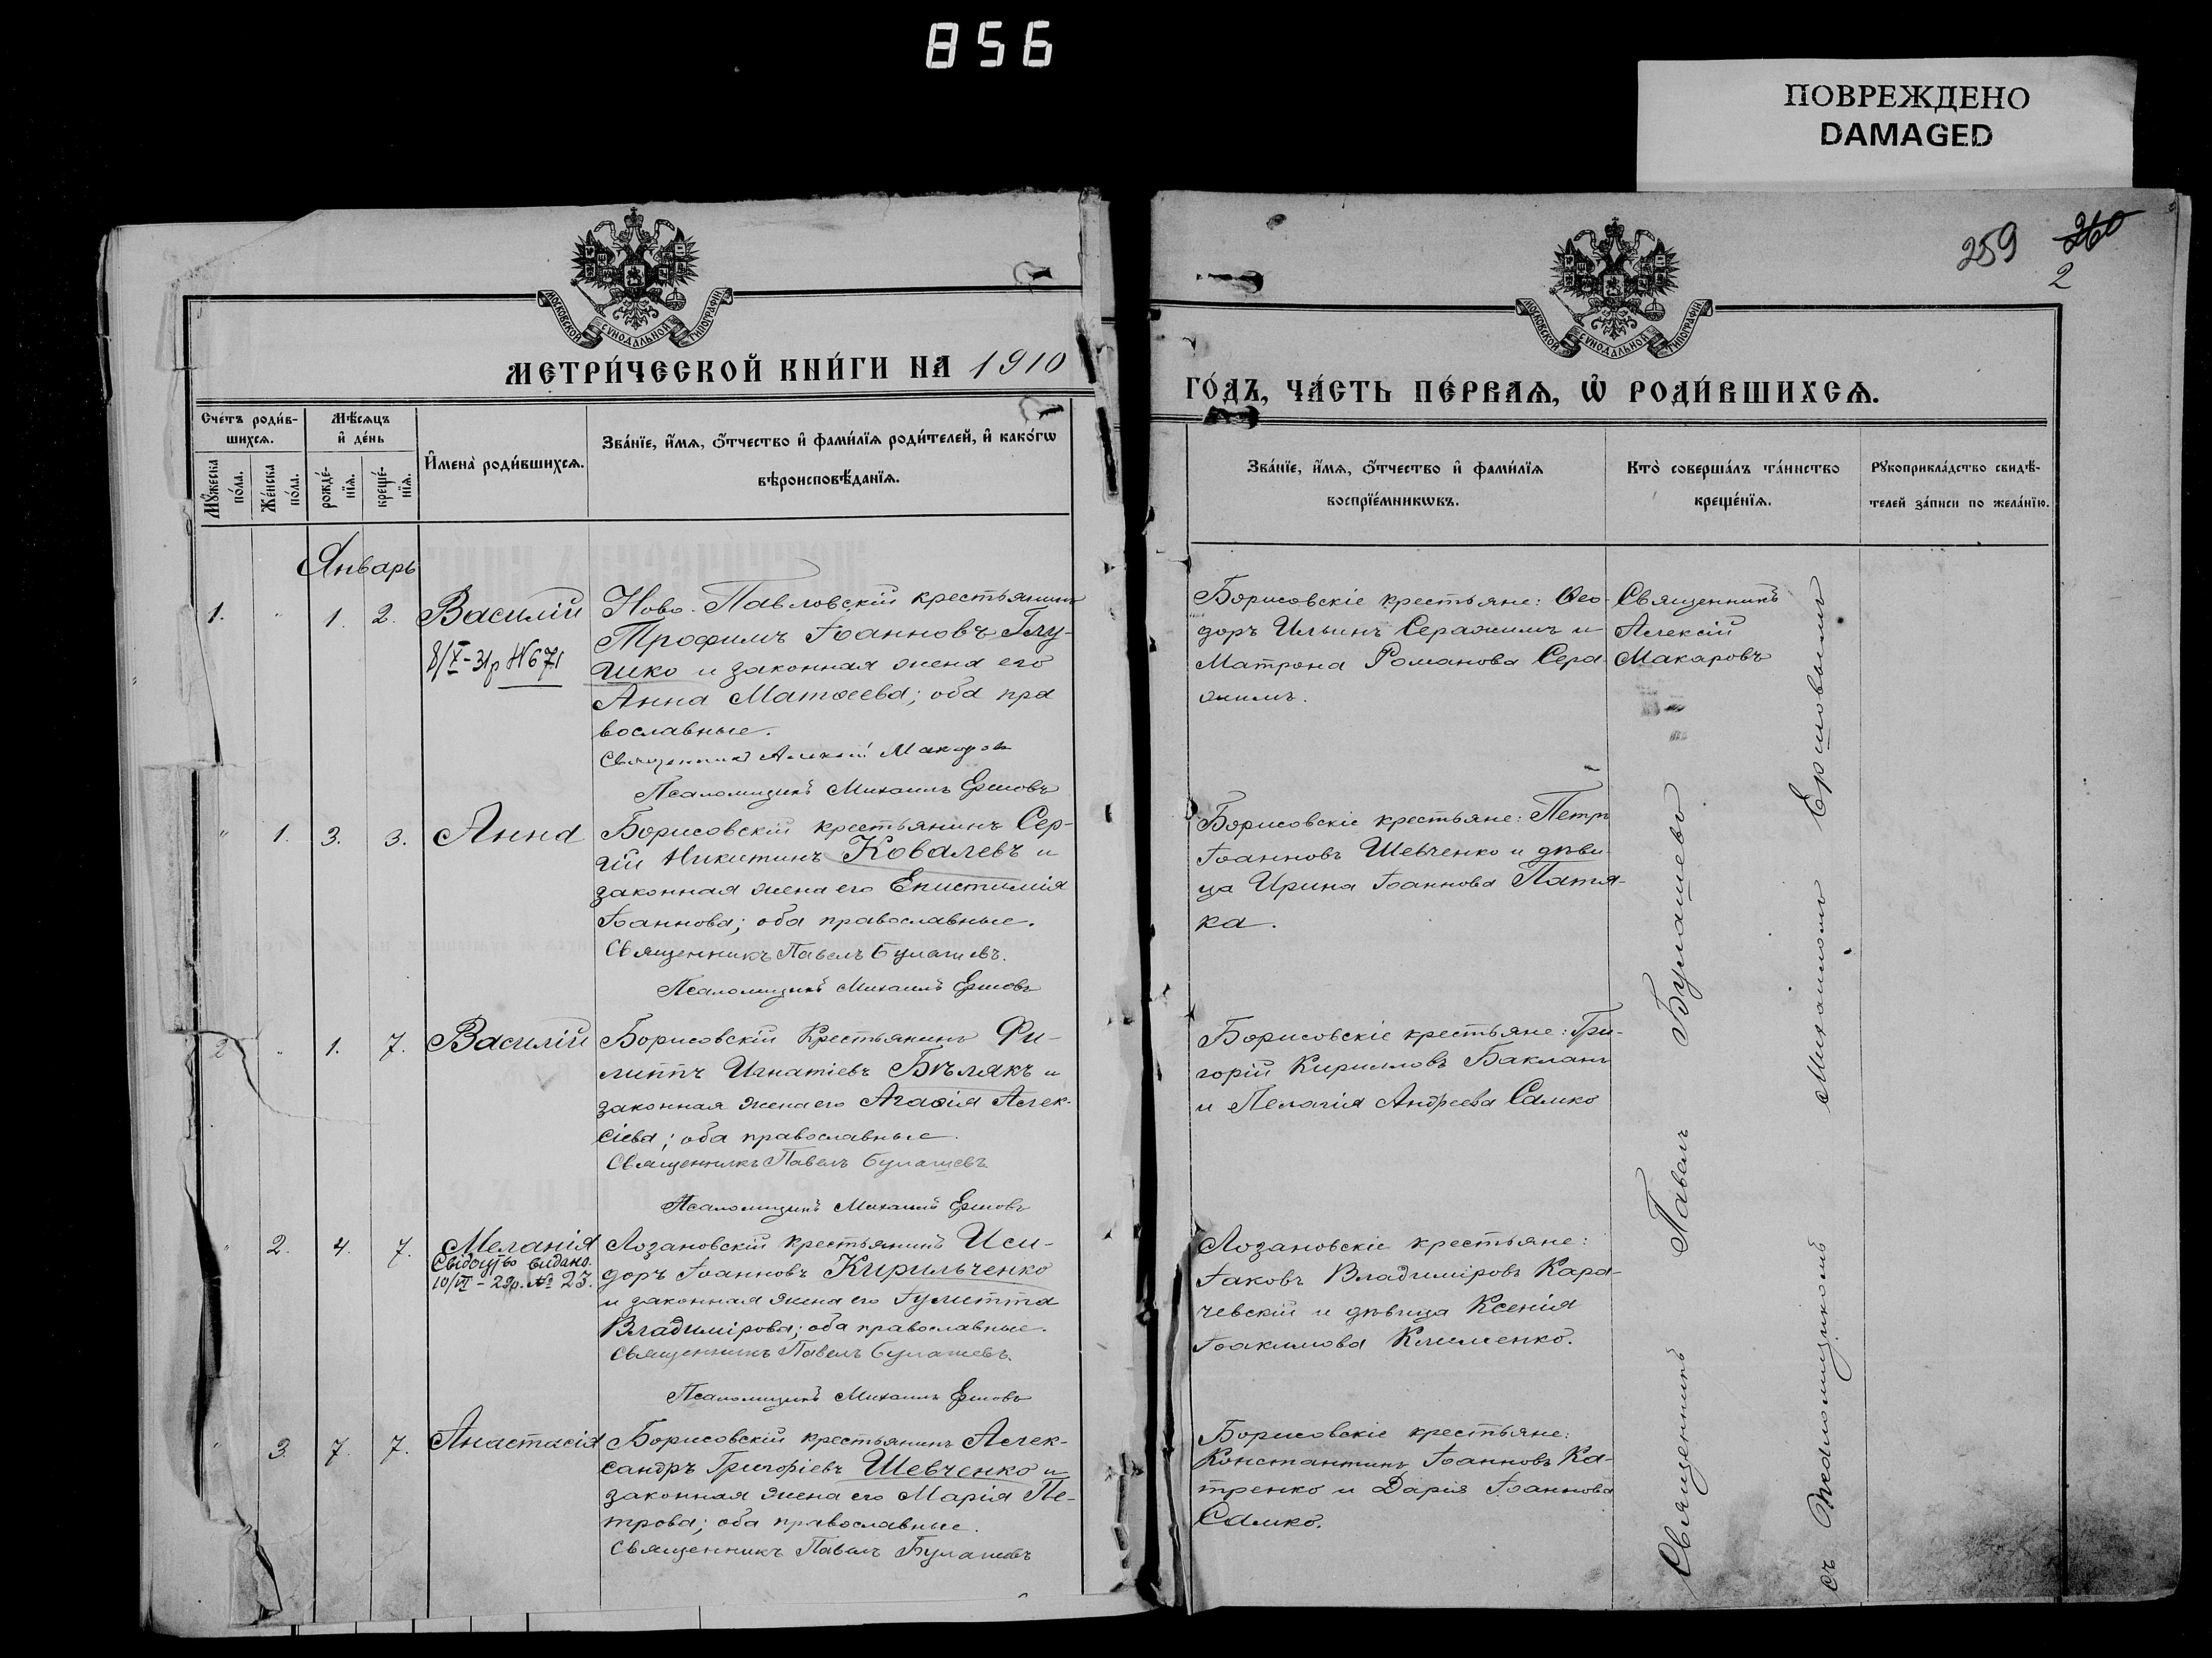 856
ПОВРЕЖДЕНО
DAMAGED
259 260
2
МОСКОВСКОЙ СѴНОДАЛЬНОЙ ТИПОГРАФІИ
МОСКОВСКОЙ СѴНОДАЛЬНОЙ ТИПОГРАФІИ
МЕТРИ́ЧЕСКОЙ КНИ́ГИ НА 1910
ГО́ДЪ, ЧА́СТЬ ПЕ́РВАѦ, Ѡ҆ РОДИ́ВШИХСѦ.
Сче́тъ роди́в-
шихсѧ.
Мꙋ́жеска
по́ла.
Же́нска
по́ла.
Мѣ́сѧцъ
и҆ де́нь
рожде́-
нїѧ.
креще́-
нїѧ.
И҆мена̀ роди́вшихсѧ.
Зва́нїе, и҆́мѧ, ѻ҆́тчество и҆ фами́лїѧ роди́телей, и҆ како́гѡ
вѣроисповѣ́данїѧ.
Зва́нїе, и҆́мѧ, ѻ҆́тчество и҆ фами́лїѧ
воспрїе́мникѡвъ.
Кто̀ соверша́лъ та́инство
креще́нїѧ.
Рꙋкоприкла́дство свидѣ́-
телей за́писи по жела́нїю.
Январь
1. " 1. 2. Василій
8/V-31р №671
Ново-Павловскій крестьянинъ
Трофимъ Іоанновъ Глу-
шко и законная жена его
Анна Матѳеева; оба пра
вославные.
Священникъ Алексій Макаровъ
Псаломщикъ Михаилъ Ершовъ
Борисовскіе крестьяне: Ѳео-
доръ Ильинъ Серажимъ и
Матрона Романова Сера
жимъ.
Священникъ
Алексій
Макаровъ
" 1. 3. 3. Анна
Борисовскій крестьянинъ Сер-
гій Никитинъ Ковалевъ и
законная жена его Епистимія
Іоаннова; оба православные.
Священникъ Павелъ Булашевъ.
Псаломщикъ Михаилъ Ершовъ
Борисовскіе крестьяне: Петръ
Іоанновъ Шевченко и дѣви-
ца Ирина Іоаннова Патя-
ка.
2 " 1. 7. Василій
Борисовскій Крестьянинъ Фи-
липпъ Игнатіевъ Бѣлякъ и
законная жена его Агаѳія Алек-
сіева; оба православные.
Священникъ Павелъ Булашевъ
Псаломщикъ Михаилъ Ершовъ
Борисовскіе крестьяне: Гри-
горій Кирилловъ Бакланъ
и Пелагія Андреева Самко
" 2. 4. 7. Меланія
Свідоцтво видано.
10/VI-29р. № 23.
Лозановскій крестьянинъ Иси-
доръ Іоанновъ Кирильченко
и законная жена его Іулитта
Владимірова; оба православные.
Священникъ Павелъ Булашевъ.
Псаломщикъ Михаилъ Ершовъ
Лозановскіе крестьяне:
Іаковъ Владиміровъ Кара-
чевскій и дѣвица Ксенія
Іоакимова Клименко.
" 3. 7. 7. Анастасія
Борисовскій крестьянинъ Алек-
сандръ Григоріевъ Шевченко и
законная жена его Марія Пе-
трова; оба православные.
Священникъ Павелъ Булашевъ
Борисовскіе крестьяне:
Константинъ Іоанновъ Ка-
тренко и Дарія Іоаннова
Самко.
Священникъ Павелъ Булашевъ
съ Псаломщикомъ Михаиломъ Ершовымъ